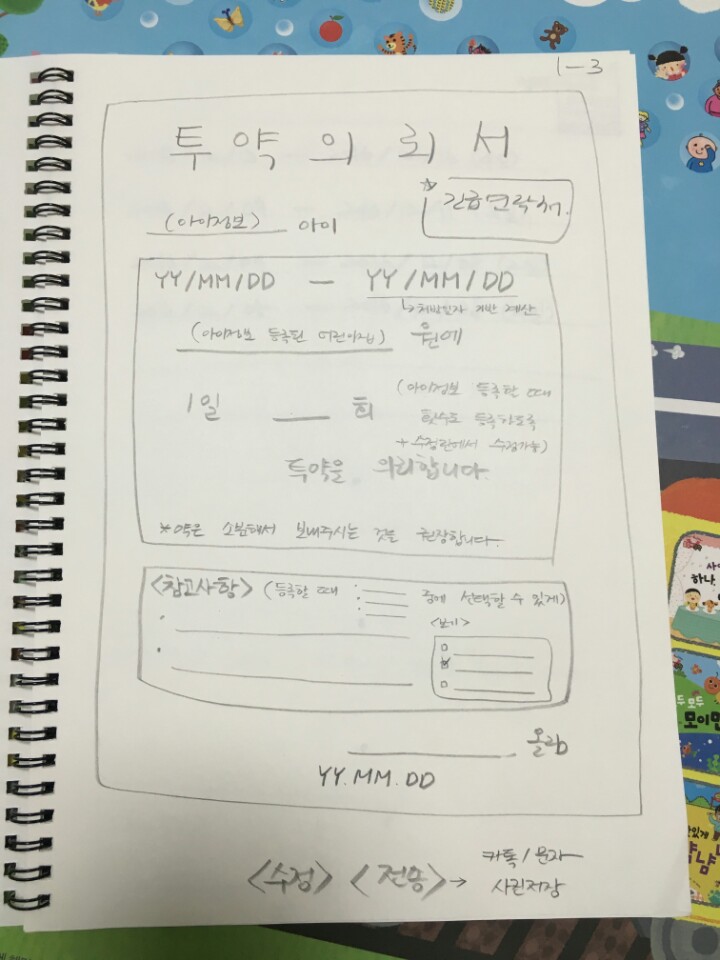 1-3
투약의뢰서
(아이정보) 아이
☆ 긴급연락처.
YY/MM/DD — YY/MM/DD
↳ 처방일자 기반 계산
(아이정보 등록된 어린이집) 원에
1일 ___ 회
(아이정보 등록할 때
횟수도 등록하도록
+ 수정란에서 수정가능)
투약을 의뢰합니다.
※약은 소분해서 보내주시는 것을 권장합니다.
<참고사항> (등록할 때 중에 선택할 수 있게)
<보기>
올림
YY.MM.DD
<수정> <전송> →
카톡/문자
사진저장
사
하나,
두 모두
모이면